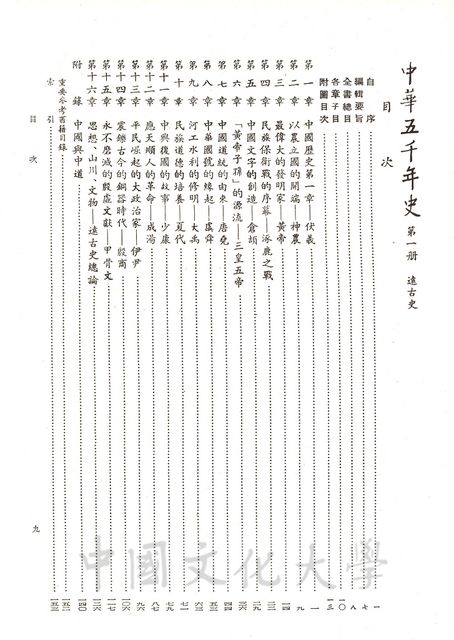 中華五千年史 第一册 遠古史
目次
自序 一
編輯要旨 七
全書總目 八
各章子目 一〇
附圖目次 一三
第一章 中國歷史第一章——伏羲 一
第二章 以農立國的開端——神農 九
第三章 最偉大的發明家——黃帝 一四
第四章 民族保衛戰的序幕——涿鹿之戰
第五章 中國文字的創造——倉頡
第六章 「黃帝子孫」的源流——三皇五帝
第七章 中國道統的由來——唐堯
第八章 中華國號的緣起——虞舜
第九章 河工水利的修明——大禹
第十章 民族道德的培養——夏代
第十一章 中興復國的故事——少康
第十二章 應天順人的革命——成湯
第十三章 平民崛起的大政治家——伊尹
第十四章 震鑠古今的銅器時代——殷商
第十五章 永不磨滅的殷虛文獻——甲骨文
第十六章 思想、山川、文物——遠古史總論
附錄 中國與中道
重要參考書籍目錄
索引
目次 九
中國文化大學